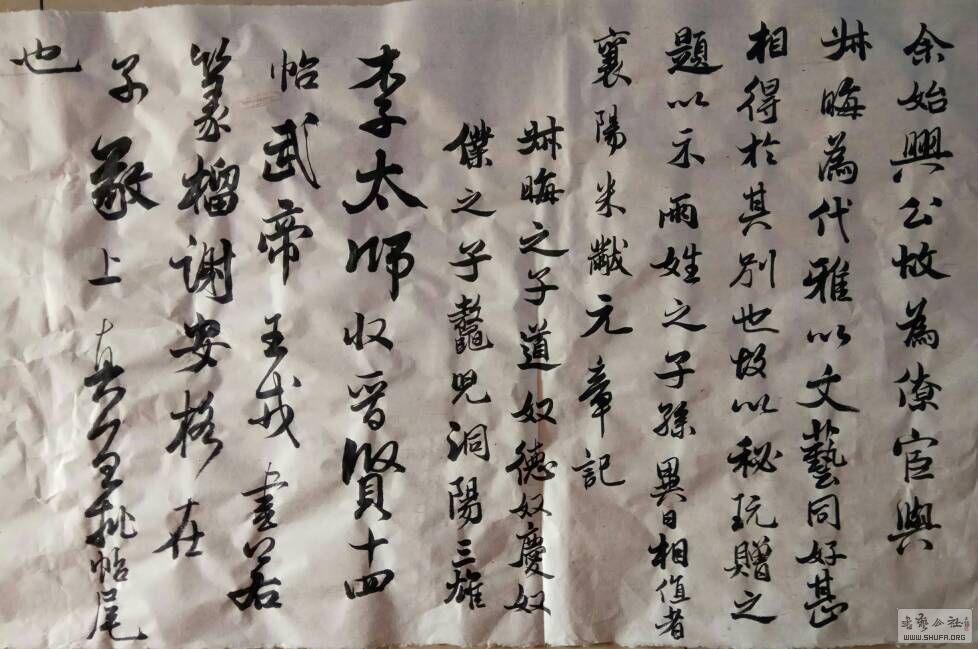 余始興公故為僚宦與
叔晦為代雅以文藝同好甚
相得於其別也故以秘玩贈之
題以示兩姓之子孫異日相值者
襄陽米黻元章記
叔晦之子道奴德奴慶奴
僕之子鼇兒洞陽三雄
李太師收晉賢十四
帖武帝王戎書若
篆籀謝安格在
子敬上真宜批帖尾
也
WWW.SHUFA.ORG